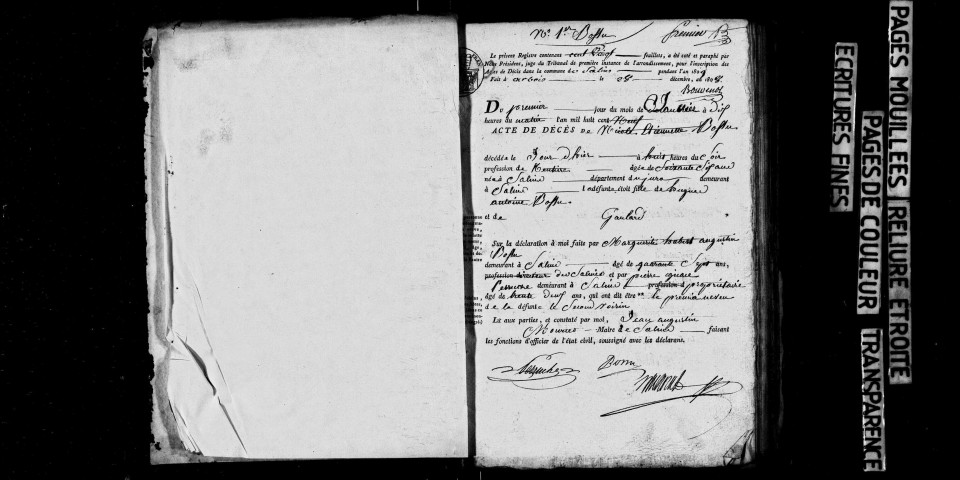 N.° 1.er Bossu premier
Le présent Registre contenant cent vingt feuillets, a été coté et paraphé par
Nous Président, juge du Tribunal de première instance de l'arrondissement, pour l'inscription des
Actes de Décès dans la commune de Salins pendant l'an 1809
Fait à arbois le 28 décembre, an 1808.
Bouvenot
Du premier jour du mois de Janvier à dix
heures du matin l'an mil huit cent Neuf
ACTE DE DÉCÈS de Nicole Etiennette Bossu
décédée le Jour d'hier à trois heures du Soir
profession de Rentière âgée de Soixante
née à Salins département du jura demeurant
à Salins Le défunt étoit fille de hugues
antoine Bossu
et de Gaulard
Sur la déclaration à moi faite par Marguerite augustin
Bossu
demeurant à Salins âgé de quarante Sept ans,
profession directeur des Salines et par pierre ignace
demeurant à Salins profession de propriétaire
âgé de trente neuf ans, qui ont dit être le premier neveu
de la défunte le Second voisin
Lu aux parties, et constaté par moi, Jean augustin
Maire de Salins faisant
les fonctions d'officier de l'état civil, soussigné avec les déclarans.
Bossu
PAGES MOUILLEES RELIURE ETROITE
PAGES DE COULEUR TRANSPARENCE
ECRITURES FINES